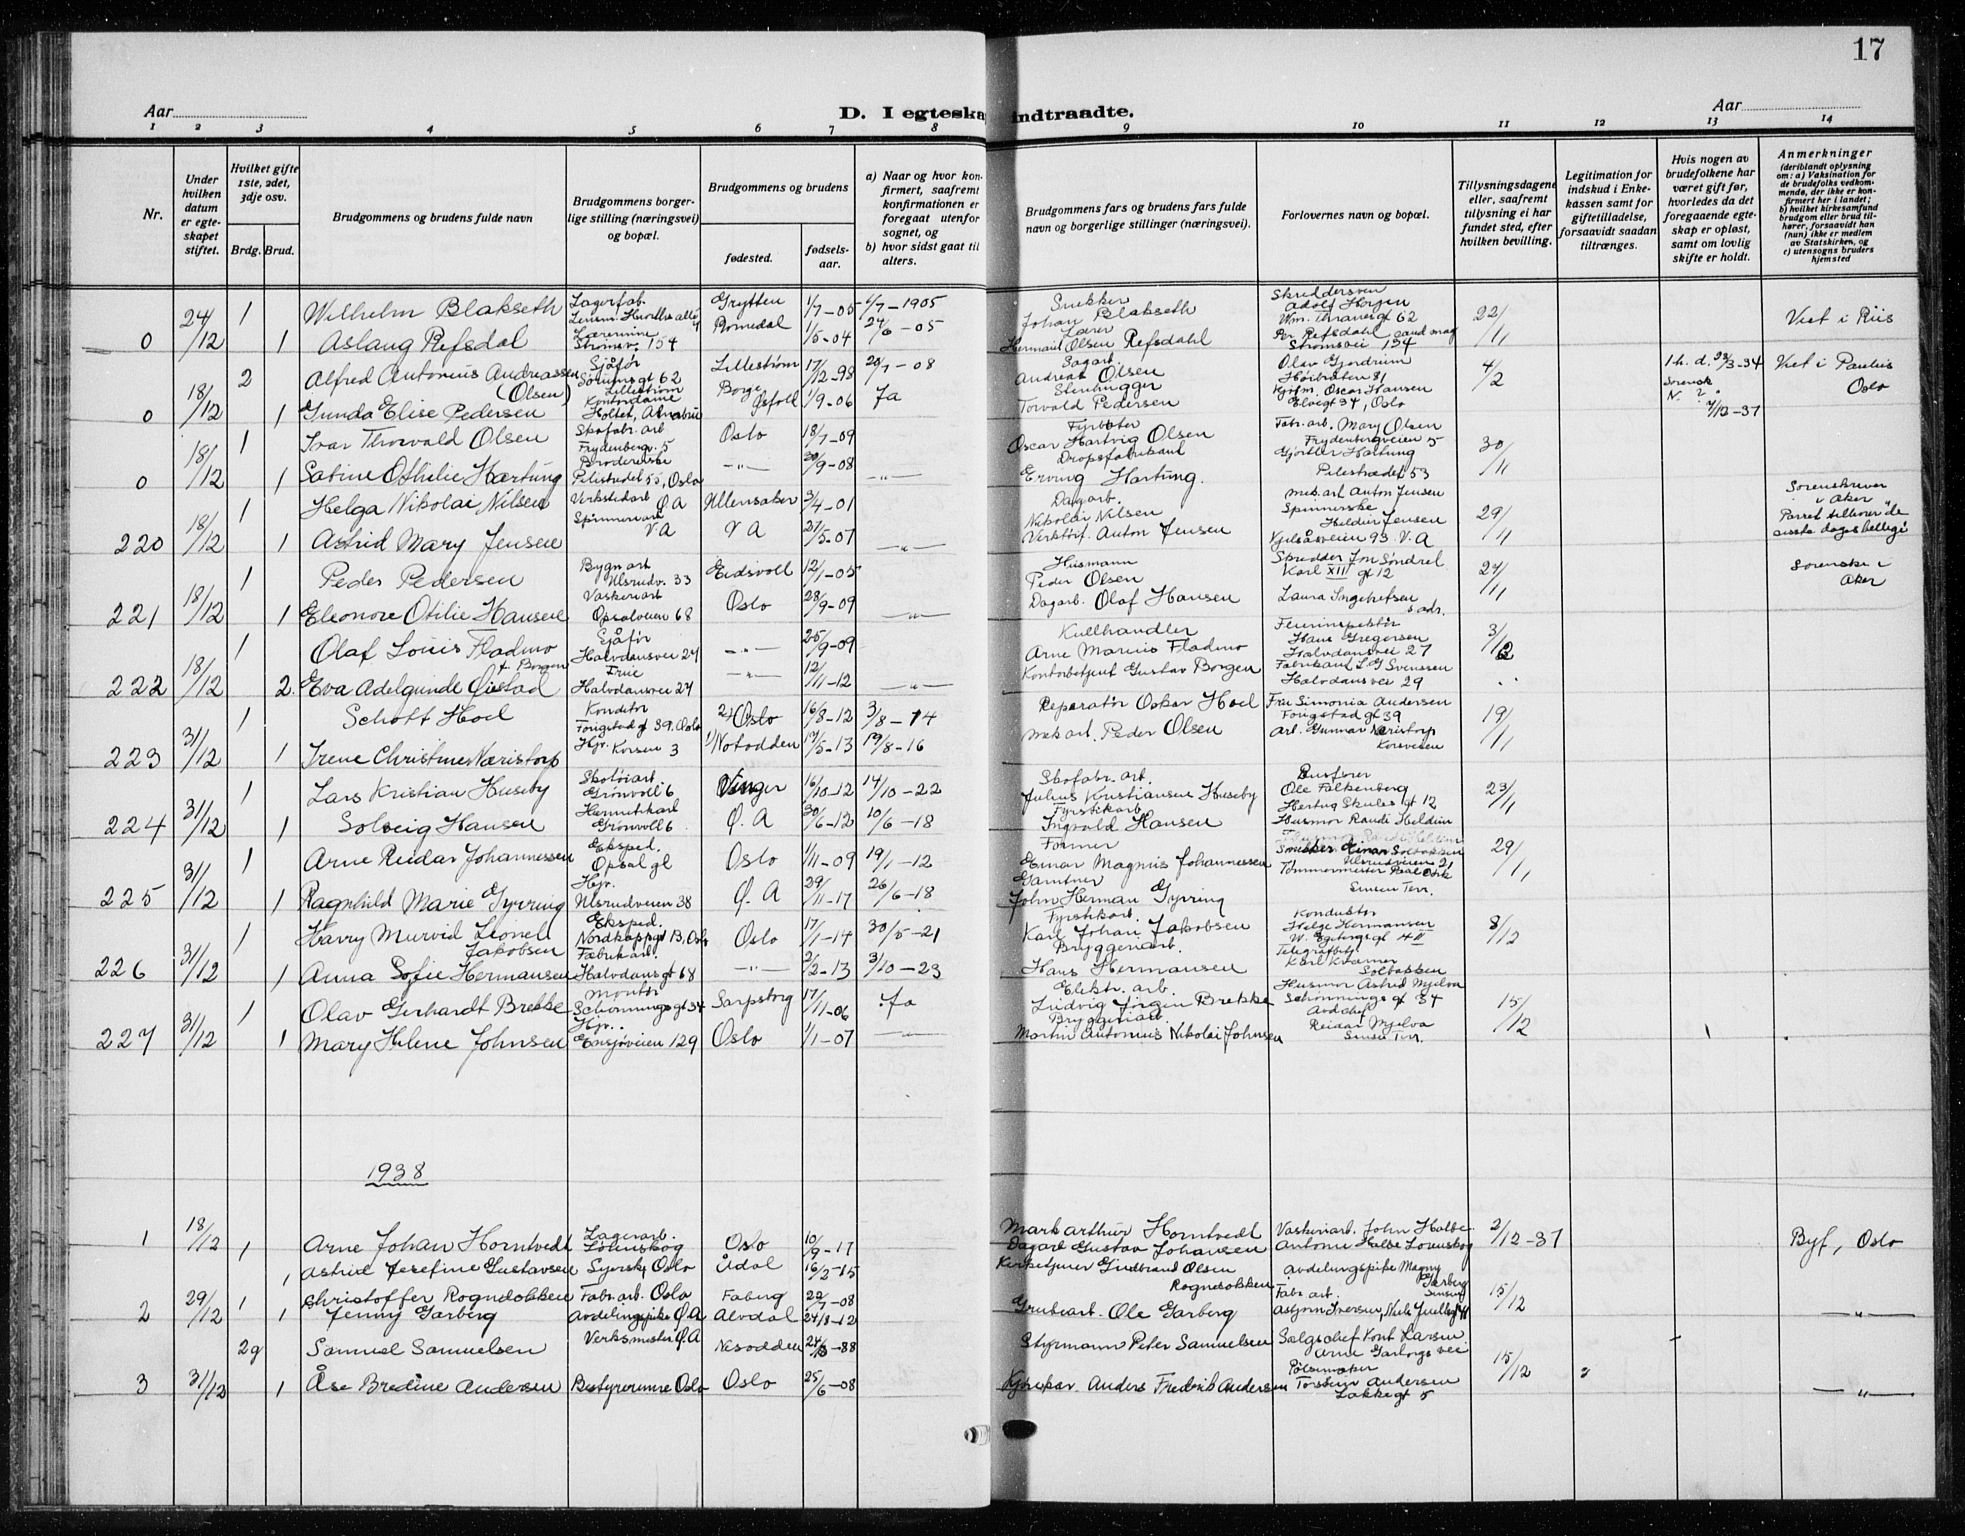 17
Aar
D. I egteska indtraadte.
Aar
1 2 3 4 5 6 7 8 9 10 11 12 13 14
Nr.
Under hvilken datum er egteskapet stiftet.
Hvilket gifte 1ste, 2det, 3dje osv.
Brdg. Brud.
Brudgommens og brudens fulde navn
Brudgommens borgerlige stilling (næringsvei) og bopæl.
Brudgommens og brudens
fødested.
fødsels-aar.
a) Naar og hvor konfirmert, saafremt konfirmationen er foregaat utenfor sognet, og
b) hvor sidst gaat til alters.
Brudgommens fars og brudens fars fulde navn og borgerlige stillinger (næringsvei).
Forlovernes navn og bopæl.
Tillysningsdagene eller, saafremt tillysning ei har fundet sted, efter hvilken bevilling.
Legitimation for indskud i Enkekassen samt for giftetilladelse, forsaavidt saadan tiltrænges.
Hvis nogen av brudefolkene har været gift før, hvorledes da det foregaaende egteskap er opløst, samt om lovlig skifte er holdt.
Anmerkninger
(deriblandt oplysning om: a) Vaksination for de brudefolks vedkommende, der ikke er konfirmert her i landet; b) hvilket kirkesamfund brudgom eller brud tilhører, forsaavidt han (hun) ikke er medlem av Statskirken, og c) utensogns bruders hjemsted
24/12 1 Wilhelm Blakseth Lagerfab. Grytten 1/7-05 1/7-1905 Snekker Johan Blakseth Skreddersven Adolf Horgen Wm. Thranesgt 62 22/11 Viet i Riis
0 1 Aslaug Refsdal Lærerinne Strømsv. 154 Romedal 1/5-04 24/6-05 Lærer Olsen Refsdahl Per Refsdahl cand mag Strømsvei 154
18/12 2 Alfred Antonius Andreassen (Olsen) Sjåfør Sørumsgt 62 Lillestrøm Lillestrøm 17/12-98 20/7-08 Sagarb. Andreas Olsen Olav Gjerdrum Høibråten 81 4/2 Viet i Paulus Oslo
0 1 Gunda Elise Pedersen Kontordame Holtet, Borge Østfold 1/9-06 Ja Stenhugger Torvald Pedersen Oscar Hansen Elvegt 34, Oslo 7/12-37
18/12 1 Ivar Thorvald Olsen Skofabr. arb Frydenbergv. 5 Oslo 18/7-09 Fyrbøter Oscar Hartvig Olsen Fabr. arb. Mary Olsen Frydenbergveien 5 30/11
0 1 Sabine Othilie Hartung Broderiske Pilestredet 53, Oslo -"- 20/9-08 -"- Dropsfabrikant Erving Hartung. Hartung Pilestrædet 53
18/12 1 Helga Nikolai Nilsen Verkstedarb Ø.A Ullensaker 3/4-01 Dagarb. Nikolai Nilsen mek. arb Anton Jensen 29/11 Sorenskriver i Aker Parret tilhører "de siste dages hellige"
220 1 Astrid Mary Jensen Spinneriarb V.A V A 21/5-07 -"- Verkstarf. Anton Jensen Spinnerske Jensen Kjelsåsveien 93. V. A
18/12 1 Peder Pedersen Bygn arb Ulsrudv. 33 Eidsvoll 12/1-05 Husmann Peder Olsen Skredder Jon Søndrel Karl XII gt 12 24/11 Sorenskr i Aker
221 1 Eleonore Otilie Hansen Vaskeriarb Opsalveien 68 Oslo 28/9-09 -"- Dagarb. Olaf Hansen Laura s. adr.
18/12 1 Olaf Louis Fladmo Sjåfør Halvdansvei 27 -"- 25/9-09 Kullhandler Arne Marius Fladmo Hans Gregersen Halvdansvei 27 3/12
222 2. Eva Adelgunde Øistad f. Borgen Frue Halvdansvei 27 -"- 12/11-12 -"- Kontorbetjent Gustav Borgen Fabrikant L G Svenssen Halvdansvei 29
31/12 1 Schott Hoel Konditor Oslo 2) Oslo 16/8-12 3/8-14 Reparatør Oskar Hoel Fru Simonia Andersen gt 39 19/11
223 1 Irene Christine Næristorp Hjv. Korsen 3 1) Notodden 17/5-13 19/8-16 mek art. Peder Olsen Arb. Gunnar Næristorp Korsveien
31/12 1 Lars Kristian Huseby Skotøiarb. Grønvoll 6 Vinger 16/10-12 14/10-22 Skofabr. arb. Julius Kristiansen Huseby Busfører Ole Falkenberg Hertug Skules gt 12 23/11
224 1 Solveig Hansen Hermetikarb Grønvoll 6 Ø. A 30/6-12 10/6-18 Fyrstikarb. Ingvald Hansen Husmor Randi Heldum
31/12 1 Arne Reidar Johannessen Eksped. Opsal gl Oslo 1/11-09 19/1-12 Former Einar Magnus Johannessen Snekker Einar Solbakken Ulsrudveien 21 29/11
225 1 Ragnhild Marie Gyrring Hjv. Ulsrudveien 38 Ø. A 29/11-17 26/6-18 Gartner John Herman Gyrring Tømmermester Sinsen Terr.
31/12 1 Harry Murvid Lionel Jakobsen Eksped. Nordkappgt 13, Oslo Oslo 17/1-14 30/5-21 Fyrstikarb. Karl Johan Jakobsen Konduktør Helge Hermansen 8/12
226 1 Anna Sofie Hermansen Fabrikarb. Halvdansgt 68 -"- 2/2-13 3/10-23 Bryggeriarb. Hans Hermansen Telegrafbetj Karl Kramer Solbakken
31/12 1 Olav Gerhardt Brekke Montør Schønningsgt 34 Sarpsborg 17/11-06 Ja Elektr. arb. Ludvig Jørgen Brekke Husmor Astrid Mjelva Schønnings gt 34 15/12
227 1 Mary Helene Johnsen Hjv. Ensjøveien 129 Oslo 1/1-07 -"- Bryggeriarb. Martin Antonius Nikolai Johnsen Avd chef Reidar Mjelva Sinsen Terr.
1938
1 18/12 1 Arne Johan Horntvedt Lagerarb. Lørenskog Oslo 10/9-17 Mark Arthur Horntvedt Vaskeriarb. John Halbe 2/12-37 Byf, Oslo
1 Astrid Josefine Gustavsen Syersk, Oslo Ådal 16/2-15 Dagarb Gustav Johansen Antonie Halbe Lørenskog
2 29/12 1 Christoffer Rognesokken Fabr. arb. Oslo Faberg 22/7-08 Kirketjener Gudbrand Olsen Rognesokken Avdelingspike Magny Garberg Sinsen 15/12 -"-
1 Jenny Garberg Avdelingspike Ø.A Alvdal 24/8-12 Grubearb. Ole Garberg Fabr. art. Asbjørn Iversen,
2g Samuel Samuelsen Verksmester Ø.A Nesodden 24/3-88 Styrmann Peter Samuelsen Salgschef Knut Larsen Arne Garborgs vei 15/12
3 31/12 1 Åse Bredine Andersen Bestyrerinne Oslo Oslo 25/6-08 Anders Fredrik Andersen Pølsemaker Torstein Andersen Lakkegt 5 -"-